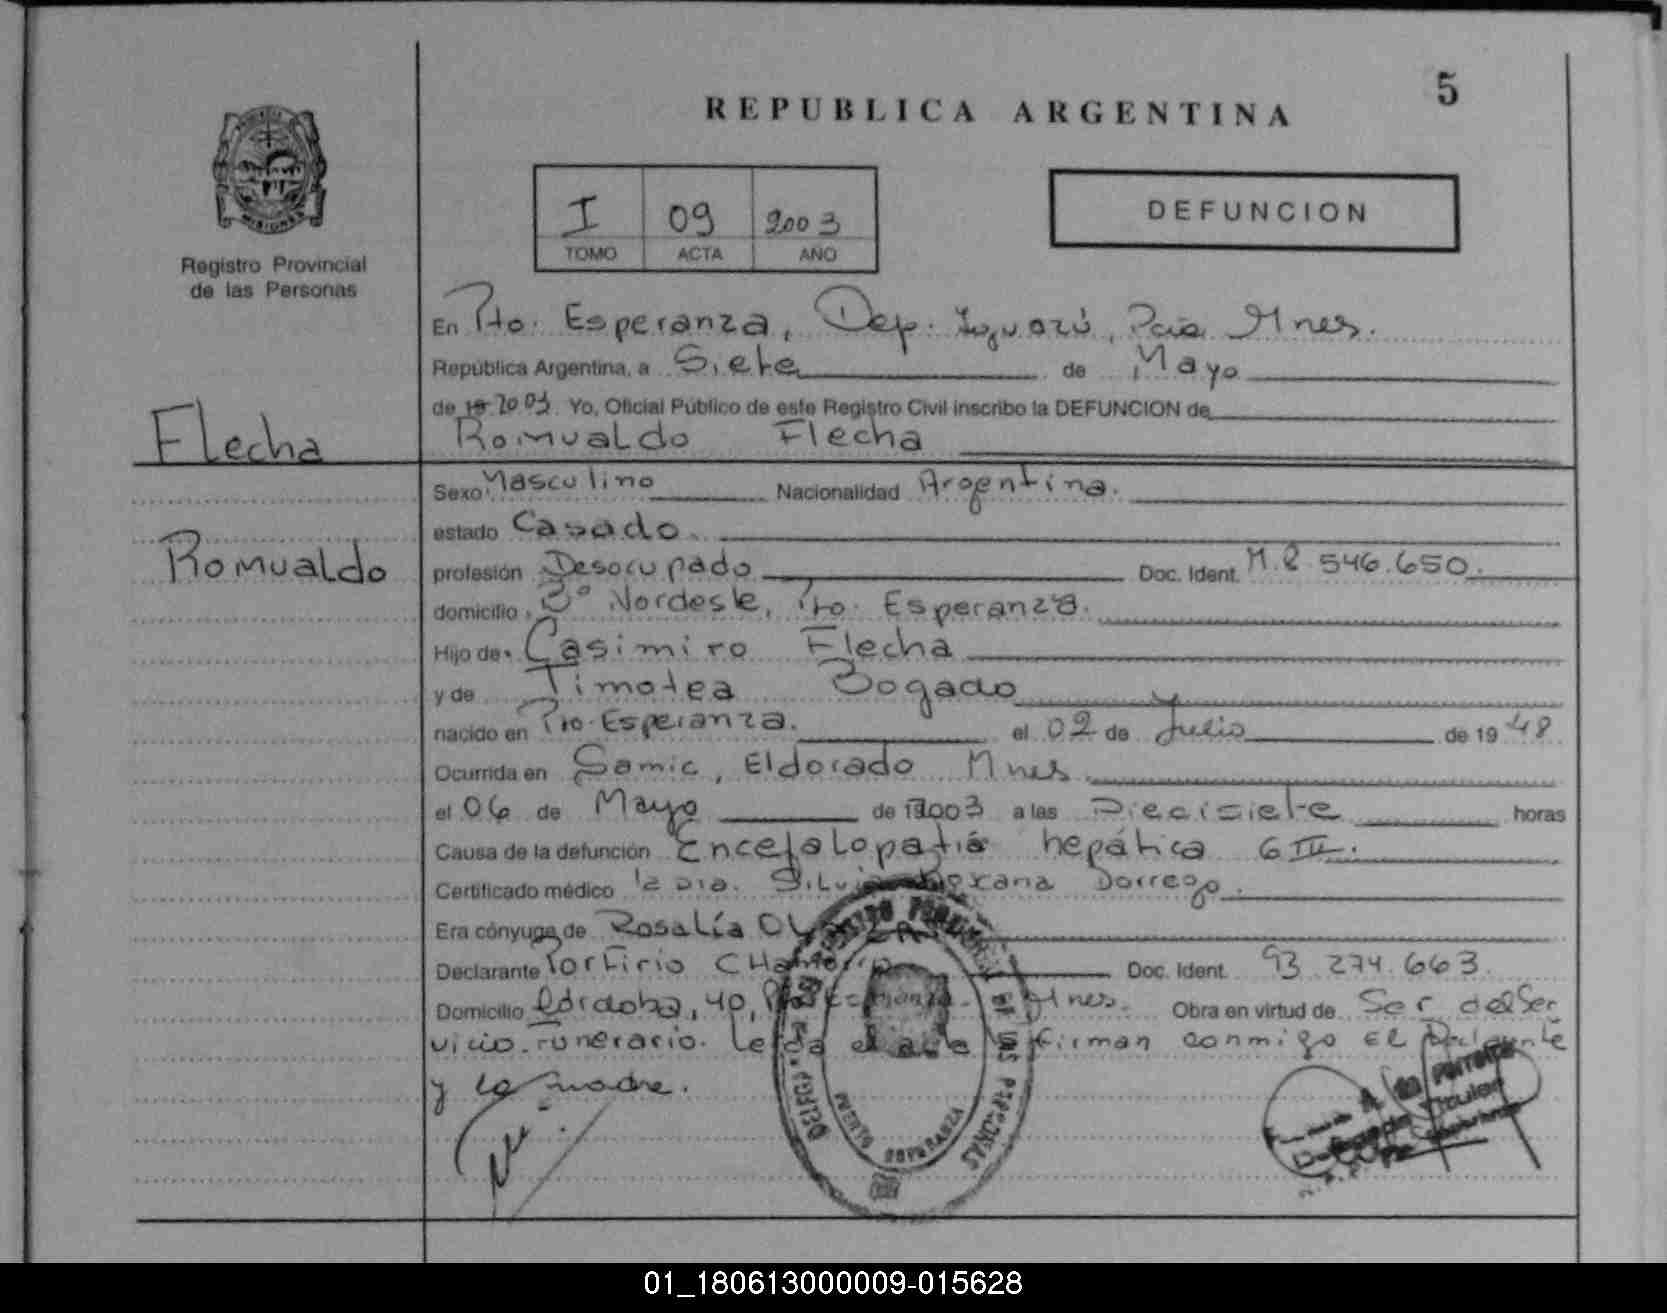 5
REPUBLICA ARGENTINA
I 09 2003
TOMO ACTA AÑO
DEFUNCION
MISIONES
Registro Provincial
de las Personas
En Pto. Esperanza, Dep. Iguazú, Pcia Mnes.
República Argentina, a Siete de Mayo
de 19 2003. Yo, Oficial Público de este Registro Civil inscribo la DEFUNCION de
Flecha
Romualdo Flecha
Sexo Masculino Nacionalidad Argentina.
estado Casado.
Romualdo
profesión Desocupado Doc. Ident. M.8.546.650.
domicilio Bº Nordeste, Pto. Esperanza.
Hijo de Casimiro Flecha
y de Timotea Bogado
nacido en Pto. Esperanza. el 02 de Julio de 19 48
Ocurrida en Samic, Eldorado Mnes
el 06 de Mayo de 2003 a las Diecisiete horas
Causa de la defunción Encefalopatía hepática G III.
Certificado médico la Dra. Silvia Roxana Dorrego.
Era cónyuge de Rosalía
Declarante Porfirio Doc. Ident. 93.274.663.
Domicilio Córdoba, 40, Mnes. Obra en virtud de Ser del Ser
vicio. Funerario. Leida el acta firman conmigo El
y la madre.
PUERTO ESPERANZA
DE LAS PERSONAS
01_180613000009-015628